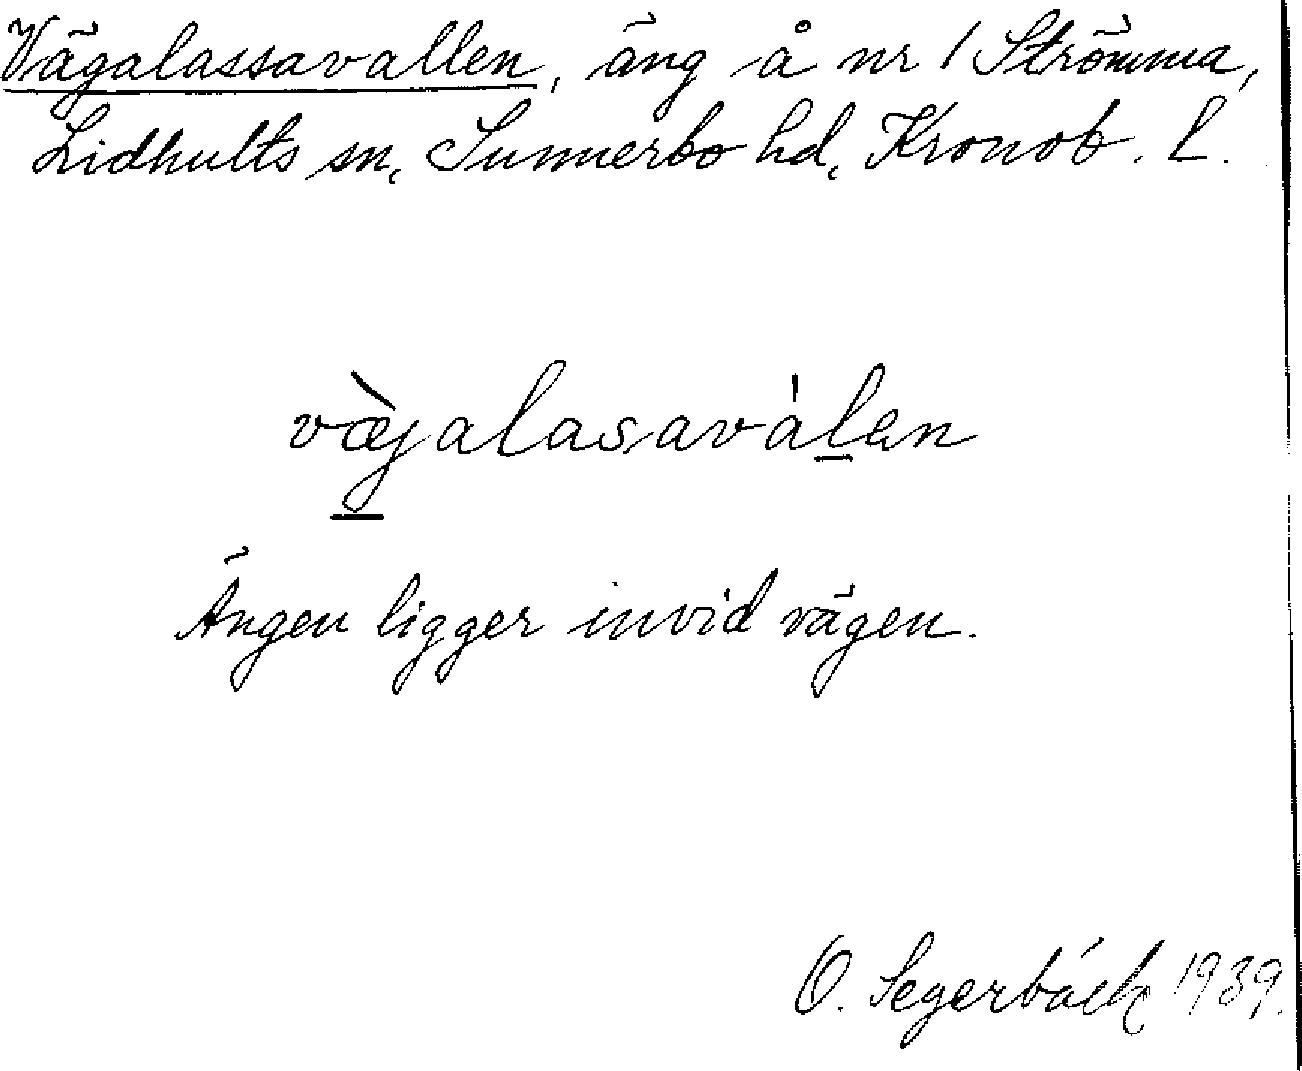 Vägalassavallen, äng å nr 1 Strömma,
Lidhults sn, Sunnerbo hd, Kronob. L.
væ̀jalasaválen
Ängen ligger invid vägen.
O. Segerbäck 1939.